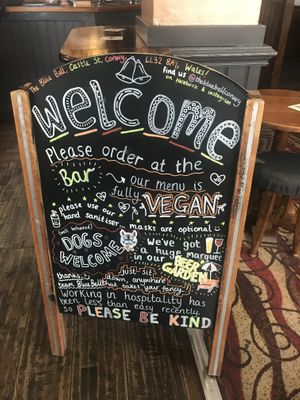 The Blue Bell, Castle St, Conwy, LL32 8AY, Wales!
find us @thebluebellconwy
on facebook & instagram
WELCOME
Please order at the
Bar
our menu is
fully VEGAN
please use our
hand sanitiser
masks are optional
well behaved
DOGS
WELCOME
We've got
a huge marquee
in our
BEER
GARDEN!
just sit
down, anywhere
that takes your fancy!
thanks,
team Blue Bell
Working in hospitality has
been less than easy recently,
so PLEASE BE KIND